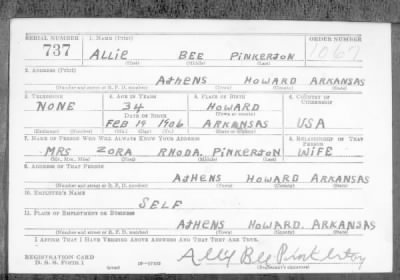 SERIAL NUMBER 1. NAME (Print) ORDER NUMBER
737 ALLIE BEE PINKERTON 1067
(First) (Middle) (Last)
2. ADDRESS (Print)
ATHENS HOWARD ARKANSAS
(Number and street or R. F. D. number) (Town) (County) (State)
3. TELEPHONE 4. AGE IN YEARS 5. PLACE OF BIRTH 6. COUNTRY OF CITIZENSHIP
NONE 34 HOWARD
DATE OF BIRTH (Town or county)
FEB 19 1906 ARKANSAS USA
(Exchange) (Number) (Mo.) (Day) (Yr.) (State or country)
7. NAME OF PERSON WHO WILL ALWAYS KNOW YOUR ADDRESS 8. RELATIONSHIP OF THAT PERSON
MRS ZORA RHODA. PINKERTON WIFE
(Mr., Mrs., Miss) (First) (Middle) (Last)
9. ADDRESS OF THAT PERSON
ATHENS HOWARD ARKANSAS
(Number and street or R. F. D. number) (Town) (County) (State)
10. EMPLOYER'S NAME
SELF
11. PLACE OF EMPLOYMENT OR BUSINESS
ATHENS HOWARD. ARKANSAS
(Number and street or R. F. D. number) (Town) (County) (State)
I AFFIRM THAT I HAVE VERIFIED ABOVE ANSWERS AND THAT THEY ARE TRUE.
REGISTRATION CARD
D. S. S. FORM 1 Ally Bee Pinkerton
(Registrant's signature)